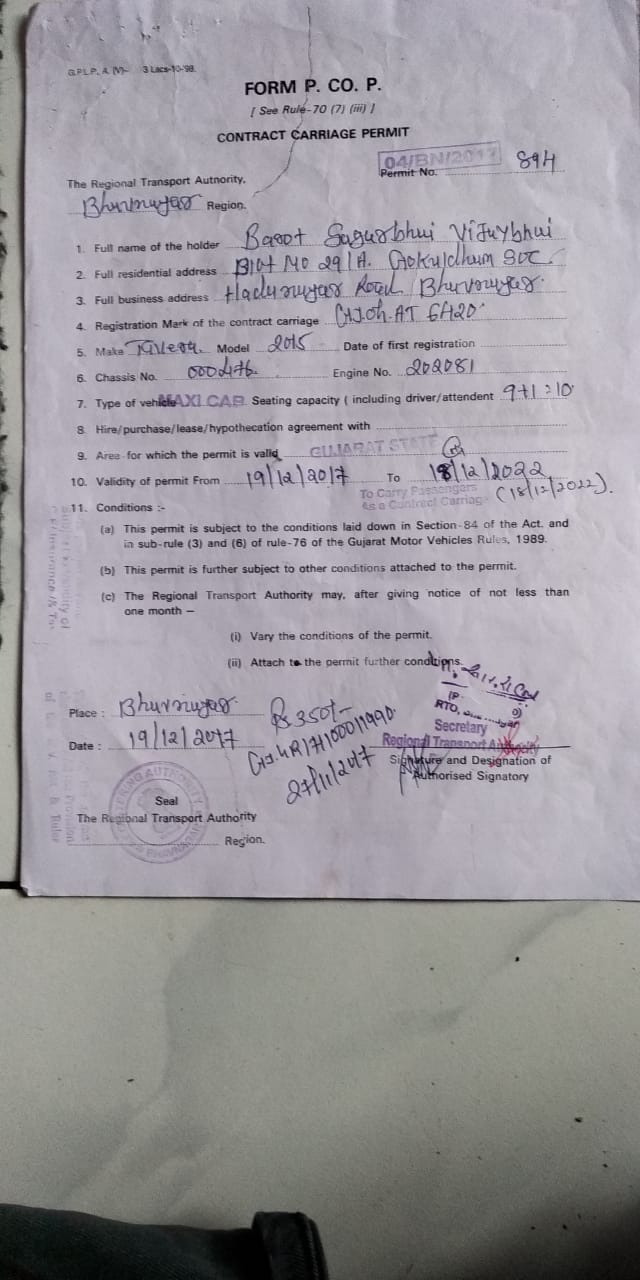 G.P.L.P., A. (V)– 3 Lacs-10-'98.
FORM P. CO. P.
[ See Rule-70 (7) (iii) ]
CONTRACT CARRIAGE PERMIT
04/BN/2017
Permit No. 894
The Regional Transport Autnority,
Bhavnagar Region.
1. Full name of the holder Barot Sagarbhai Vijaybhai
2. Full residential address Plot No 29/A. Gokuldham Soc.
3. Full business address Hadanagar Road Bhavnagar.
4. Registration Mark of the contract carriage GJ04 AT 6420
5. Make Tavera. Model 2015 Date of first registration
6. Chassis No. 000476. Engine No. 202081
7. Type of vehicle MAXI CAB Seating capacity ( including driver/attendent 9+1=10
8. Hire/purchase/lease/hypothecation agreement with
9. Area for which the permit is valid GUJARAT STATE
10. Validity of permit From 19/12/2017 To 18/12/2022
To Carry Passengers
As a Contract Carriage (18/12/2022).
11. Conditions :-
(a) This permit is subject to the conditions laid down in Section-84 of the Act. and
in sub-rule (3) and (6) of rule-76 of the Gujarat Motor Vehicles Rules, 1989.
(b) This permit is further subject to other conditions attached to the permit.
(c) The Regional Transport Authority may, after giving notice of not less than
one month —
(i) Vary the conditions of the permit.
(ii) Attach to the permit further conditions.
Place : Bhavnagar Rs 350/-
RTO,
Secretary
Date : 19/12/2017
Regional Transport Authority
27/11/2017
Signature and Designation of
Authorised Signatory
Seal
The Regional Transport Authority
Region.